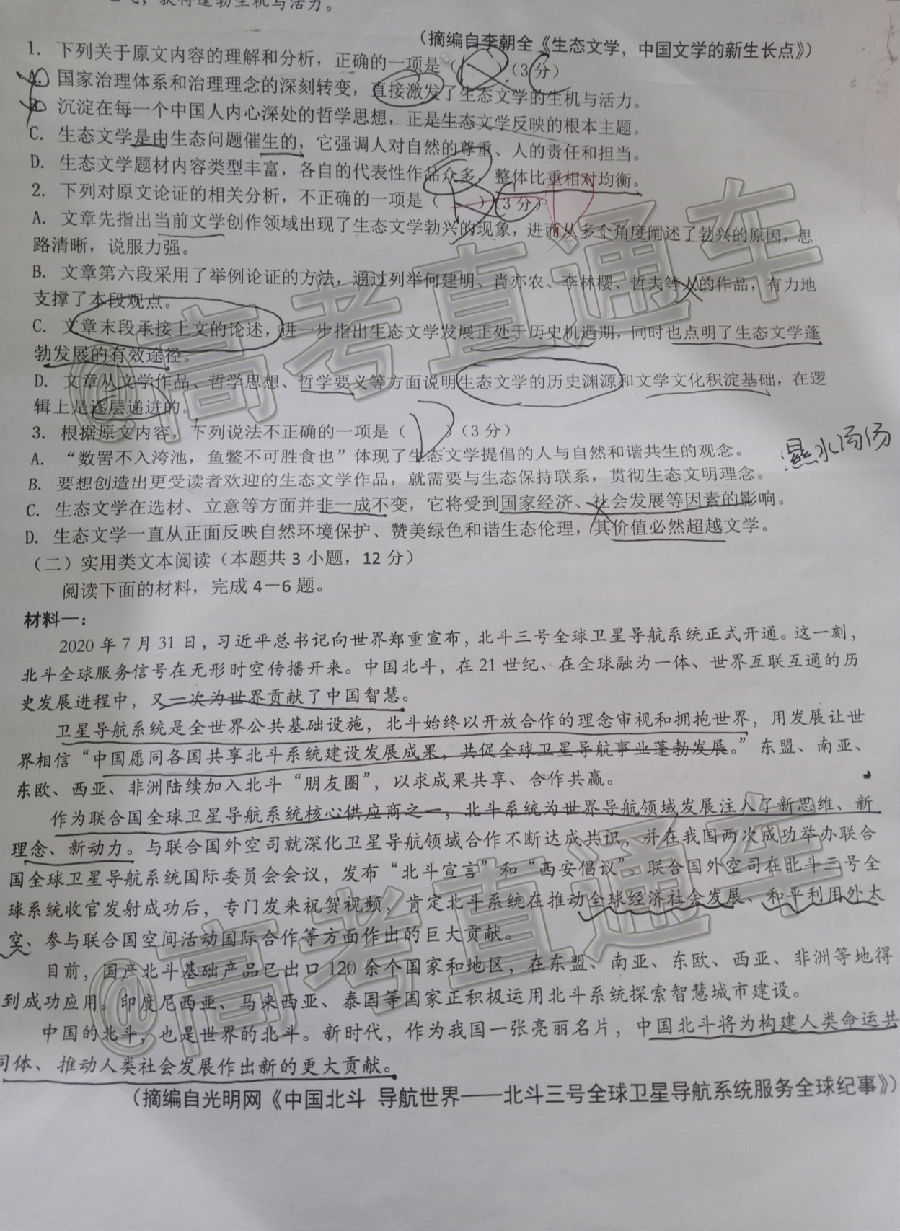 获得蓬勃生机与活力。
（摘编自李朝全《生态文学，中国文学的新生长点》）
1. 下列关于原文内容的理解和分析，正确的一项是（ ）（3分）
国家治理体系和治理理念的深刻转变，直接激发了生态文学的生机与活力。
沉淀在每一个中国人内心深处的哲学思想，正是生态文学反映的根本主题。
C. 生态文学是由生态问题催生的，它强调人对自然的尊重、人的责任和担当。
D. 生态文学题材内容类型丰富，各自的代表性作品众多，整体比重相对均衡。
2. 下列对原文论证的相关分析，不正确的一项是（ ）（3分）
A. 文章先指出当前文学创作领域出现了生态文学勃兴的现象，进而从多个角度阐述了勃兴的原因，思
路清晰，说服力强。
B. 文章第六段采用了举例论证的方法，通过列举何建明、肖亦农、李林樱、哲夫等人的作品，有力地
支撑了本段观点。
C. 文章末段承接上文的论述，进一步指出生态文学发展正处于历史机遇期，同时也点明了生态文学蓬
勃发展的有效途径。
D. 文章从文学作品、哲学思想、哲学要义等方面说明生态文学的历史渊源和文学文化积淀基础，在逻
辑上是逐层递进的。
3. 根据原文内容，下列说法不正确的一项是（ ）（3分）
A. “数罟不入洿池，鱼鳖不可胜食也”体现了生态文学提倡的人与自然和谐共生的观念。
B. 要想创造出更受读者欢迎的生态文学作品，就需要与生态保持联系，贯彻生态文明理念。
C. 生态文学在选材、立意等方面并非一成不变，它将受到国家经济、社会发展等因素的影响。
D. 生态文学一直从正面反映自然环境保护、赞美绿色和谐生态伦理，其价值必然超越文学。
（二）实用类文本阅读（本题共3小题，12分）
阅读下面的材料，完成4－6题。
材料一：
2020年7月31日，习近平总书记向世界郑重宣布，北斗三号全球卫星导航系统正式开通。这一刻，
北斗全球服务信号在无形时空传播开来。中国北斗，在21世纪、在全球融为一体、世界互联互通的历
史发展进程中，又一次为世界贡献了中国智慧。
卫星导航系统是全世界公共基础设施，北斗始终以开放合作的理念审视和拥抱世界，用发展让世
界相信“中国愿同各国共享北斗系统建设发展成果，共促全球卫星导航事业蓬勃发展。”东盟、南亚、
东欧、西亚、非洲陆续加入北斗“朋友圈”，以求成果共享、合作共赢。
作为联合国全球卫星导航系统核心供应商之一，北斗系统为世界导航领域发展注入了新思维、新
理念、新动力。与联合国外空司就深化卫星导航领域合作不断达成共识，并在我国两次成功举办联合
国全球卫星导航系统国际委员会会议，发布“北斗宣言”和“西安倡议”，联合国外空司在北斗三号全
球系统收官发射成功后，专门发来祝贺视频，肯定北斗系统在推动全球经济社会发展、和平利用外太
空、参与联合国空间活动国际合作等方面作出的巨大贡献。
目前，国产北斗基础产品已出口120余个国家和地区，在东盟、南亚、东欧、西亚、非洲等地得
到成功应用，印度尼西亚、马来西亚、泰国等国家正积极运用北斗系统探索智慧城市建设。
中国的北斗，也是世界的北斗。新时代，作为我国一张亮丽名片，中国北斗将为构建人类命运共
同体、推动人类社会发展作出新的更大贡献。
（摘编自光明网《中国北斗 导航世界——北斗三号全球卫星导航系统服务全球纪事》）
@高考直通车
@高考直通车